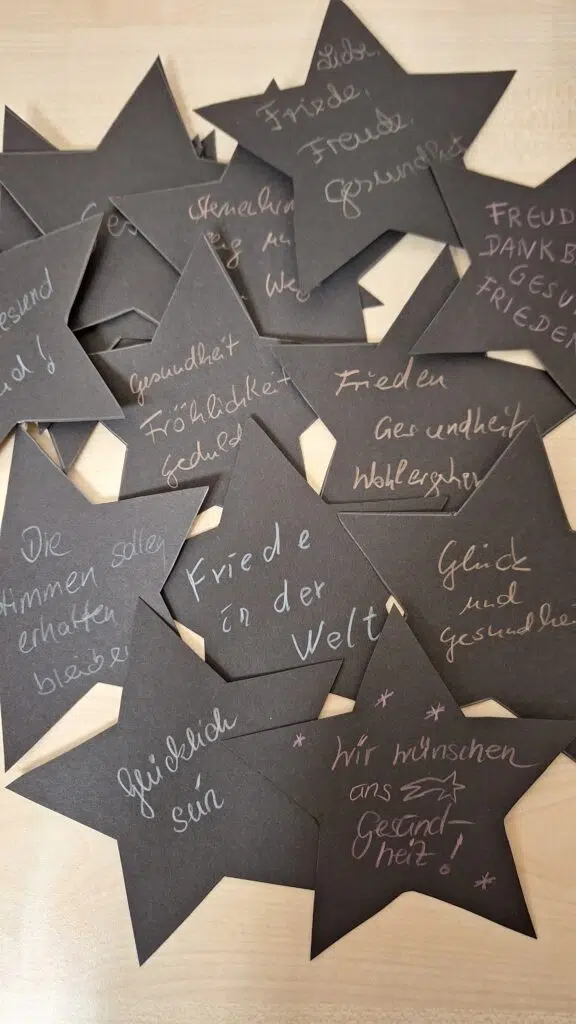 Liebe,
Friede,
Freude,
Gesundheit
FREUD
DANKB
GESU
FRIEDEN
und
Weg
esund
d!
Gesundheit
Fröhlichkeit
Geduld
Frieden
Gesundheit
Wohlergehen
Die
Stimmen sollen
erhalten
bleiben
Friede
in der
Welt
Glück
und
Gesundhei
Glücklich
sein
Wir wünschen
uns
Gesund-
heit!